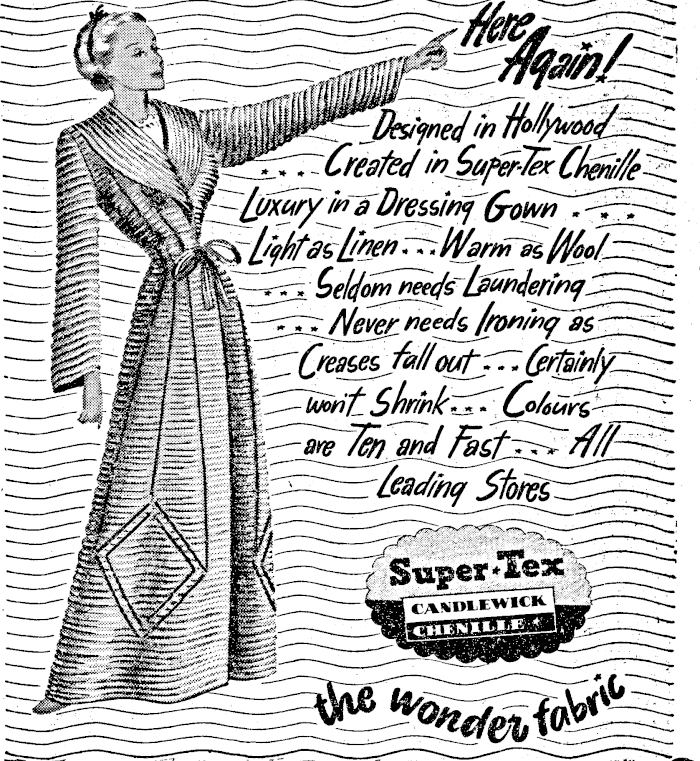 Here
Again!
Designed in Hollywood
.... Created in Super-Tex Chenille
Luxury in a Dressing Gown ....
Light as Linen... Warm as Wool
... Seldom needs Laundering
... Never needs Ironing as
Creases fall out ... Certainly
won't Shrink... Colours
are Ten and Fast .... All
Leading Stores
Super-Tex
CANDLEWICK
CHENILLE
the wonder fabric